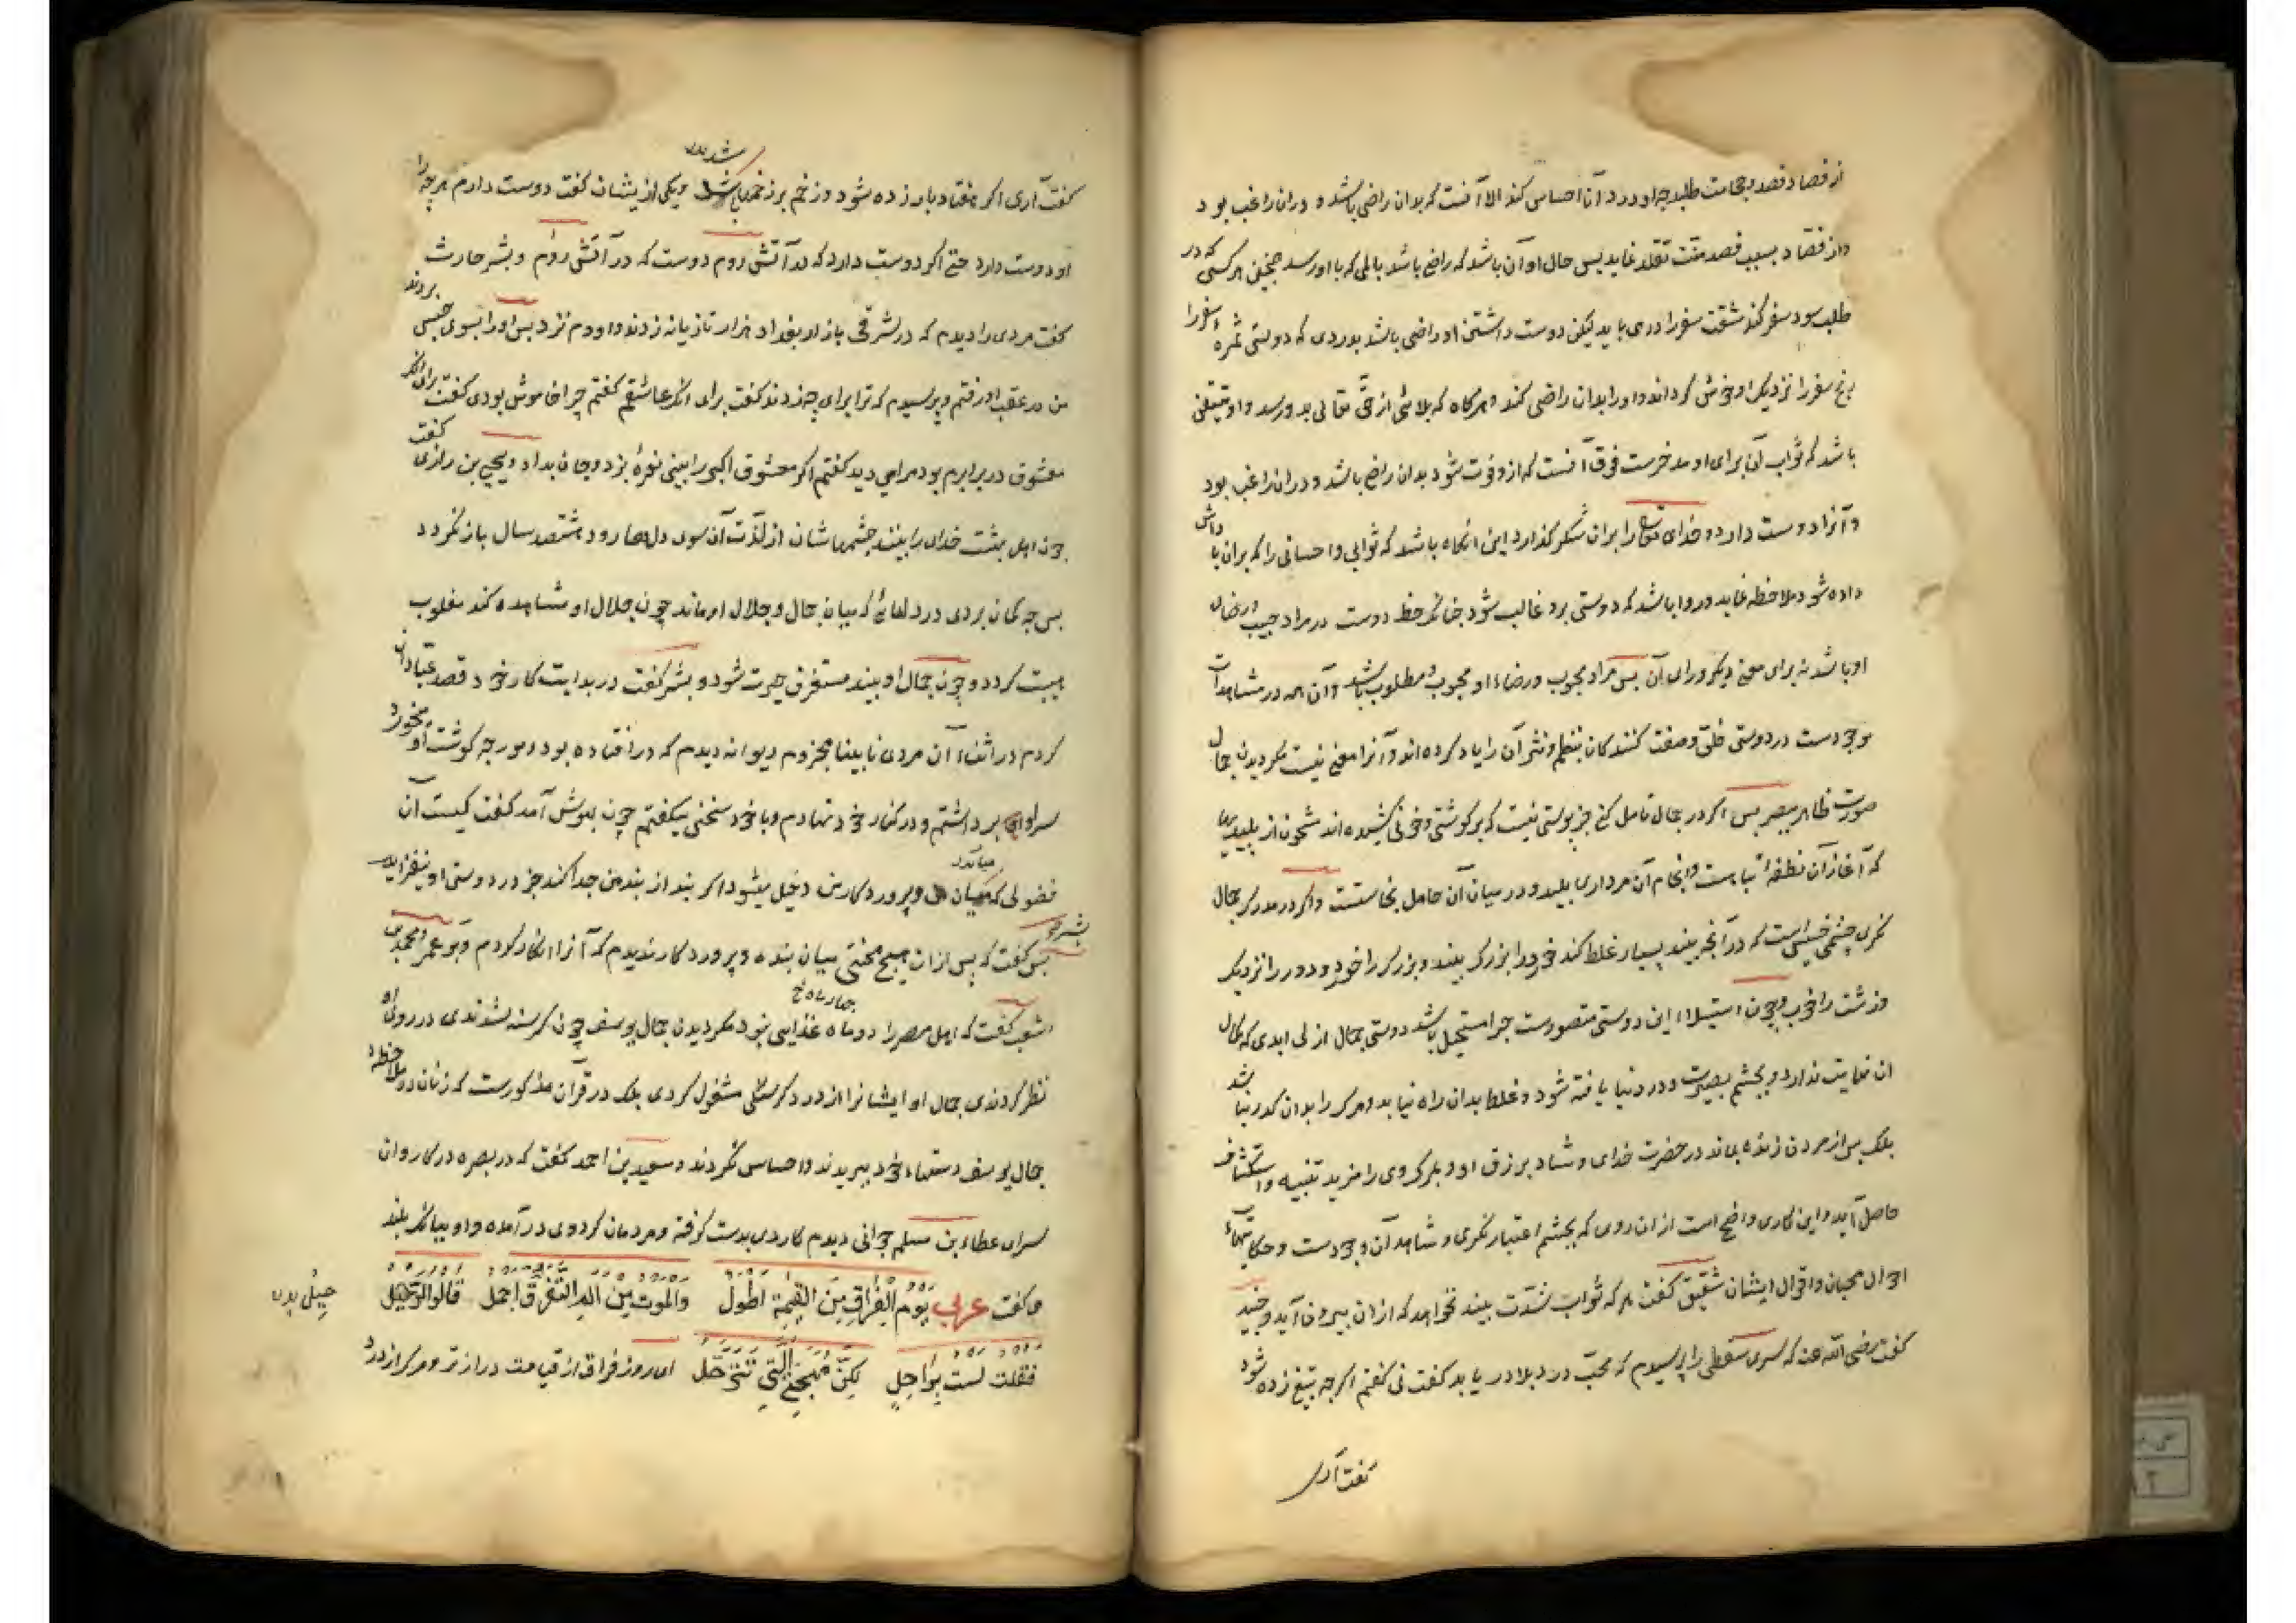 از فصاد فصد و حجامت طلبد چه او درد آنرا احساس کند الا آنست که بدان راضی باشد و دران راغب بود
و از فصاد بسبب فصد منت تقلد نماید پس حال او آن باشد که راضی باشد بالمی که باو رسد همچنین هر کسی که در
طلب سود سفر کند مشقت سفر را دری یابد لیکن دوست داشتن او راضی باشد بدردی که دوستی ثمرهٔ سفر را
رنج سفر را نزدیک او خوش گرداند و او را بدان راضی کند و هرگاه که بلائی از حق تعالی بدو رسد و او متیقن
باشد که ثواب آن برای او مدخرست فوق آنست که ازو فوت شود بدان راضی باشد و دران راغب بود
و آنرا دوست دارد و خدای تعالی را بران شکر گذارد این آنگاه باشد که ثوابی و احسانی را که بران پاداش
داده شود ملاحظه نماید و روا باشد که دوستی برو غالب شود چنانکه حظ دوست در مراد حبیب و رضای
او باشد نه برای معنی دیگر ورای آن پس مراد محبوب و رضاء او محبوب و مطلوب باشد و آن همه در مشاهدات
موجودست در دوستی خلق و صفت کنندگان بنظم و نثر آن را یاد کرده اند و آنرا معنی نیست مگر دیدن جمال
صورت ظاهر ببصر پس اگر در جمال تامل کنی جز پوستی نیست که بر گوشتی و خونی کشیده اند مشحون از پلیدیها
که آغاز آن نطفهٔ تباه است و انجام آن مرداری پلید و در میان آن حامل نجاستست و اگر در مدرک جمال
نگری چشمی خسیس است که در آنچه بیند بسیار غلط کند خرد را بزرگ بیند و بزرگ را خرد و دور را نزدیک
و زشت را خوب و چون استیلاء این دوستی متصورست چرا مستحیل باشد دوستی جمال ازلی ابدی که کمال
آن نهایت ندارد و بچشم بصیرت و در دنیا یافته شود و غلط بدان راه نیابد و مرگ را بدان گذر نباشد
بلکه پس از مردن زنده بماند در حضرت خدای و شاد برزق او و بمرگ وی را مزید تنبیه و استکشاف
حاصل آید و این کاری واضح است ازان روی که بچشم اعتبار نگری و شاهد آن وجودست و حکایتهاء
احوال محبان و اقوال ایشان شقیق گفت هر که ثواب شدت بیند نخواهد که ازان بیرون آید و جنید
گفت رضی الله عنه که سری سقطی را پرسیدم که محب درد بلا دریابد گفت نی گفتم اگرچه بتیغ زده شود
گفت آری
گفت آری اگر هفتاد بار زده شود و زخم بر زخم باشد و یکی از یشان گفت دوست دارم هرچه را
او دوست دارد حتی اگر دوست دارد که در آتش روم دوست که در آتش روم و بشر حارث
گفت مردی را دیدم که در شرقی بازار بغداد هزار تازیانه زدند و او دم نزد پس او را بسوی حبس بردند
من در عقب او رفتم و پرسیدم که ترا برای چه زدند گفت برای آنکه عاشقم گفتم چرا خاموش بودی گفت برای آنکه
معشوق در برابرم بود مرا می دید گفتم اگر معشوق اکبر را بینی نعرهٔ بزد و جان بداد و یحیی بن رازی گفت
چون اهل بهشت خدای را بینند چشمهاشان از لذت آن سوی دلها رود هشتصد سال باز نگردد
پس چه گمان بری در دلهائی که میان جمال و جلال او ماند چون جلال او مشاهده کند مغلوب
هیبت گردد و چون جمال او بیند مستغرق حیرت شود و بشر گفت در بدایت کار خود قصد عبادان
کردم در اثناء آن مردی نابینا مجذوم دیوانه دیدم که در افتاده بود و مورچه گوشت او میخورد
سر او برداشتم و در کنار خود نهادم و با خود سخنی میگفتم چون بهوش آمد گفت کیست آن
فضولی که میان من و پروردگار من دخیل میشود اگر بند از بند من جدا کند جز در دوستی او نیفزاید
بشر گفت که پس ازان هیچ محنتی میان بنده و پروردگار ندیدم که آنرا انکار کردم و بو عمرو محمد بن
اشعب گفت که اهل مصر را دو ماه غذایی نبود مگر دیدن جمال یوسف چون گرسنه شدندی در روی او
نظر کردندی جمال او ایشانرا از درد گرسنگی مشغول کردی بلکه در قرآن مذکورست که زنان در ملاحظهٔ
جمال یوسف دستهاء خود ببریدند و احساس نکردند و سعید بن احمد گفت که در بصره در کاروان
سرای عطاء بن مسلم جوانی دیدم کاردی بدست گرفته و مردمان گرد وی در آمده و او ببانگ بلند
می گفت عربی یَوْمُ الْفِرَاقِ مِنَ الْقِیٰمَةِ اَطْوَلُ والموت من الم التفرق اجمل قالوا الرحیل
فقلت لست براحل لکن مهجتی التی تترحل ای روز فراق از قیامت درازتر و مرگ از درد